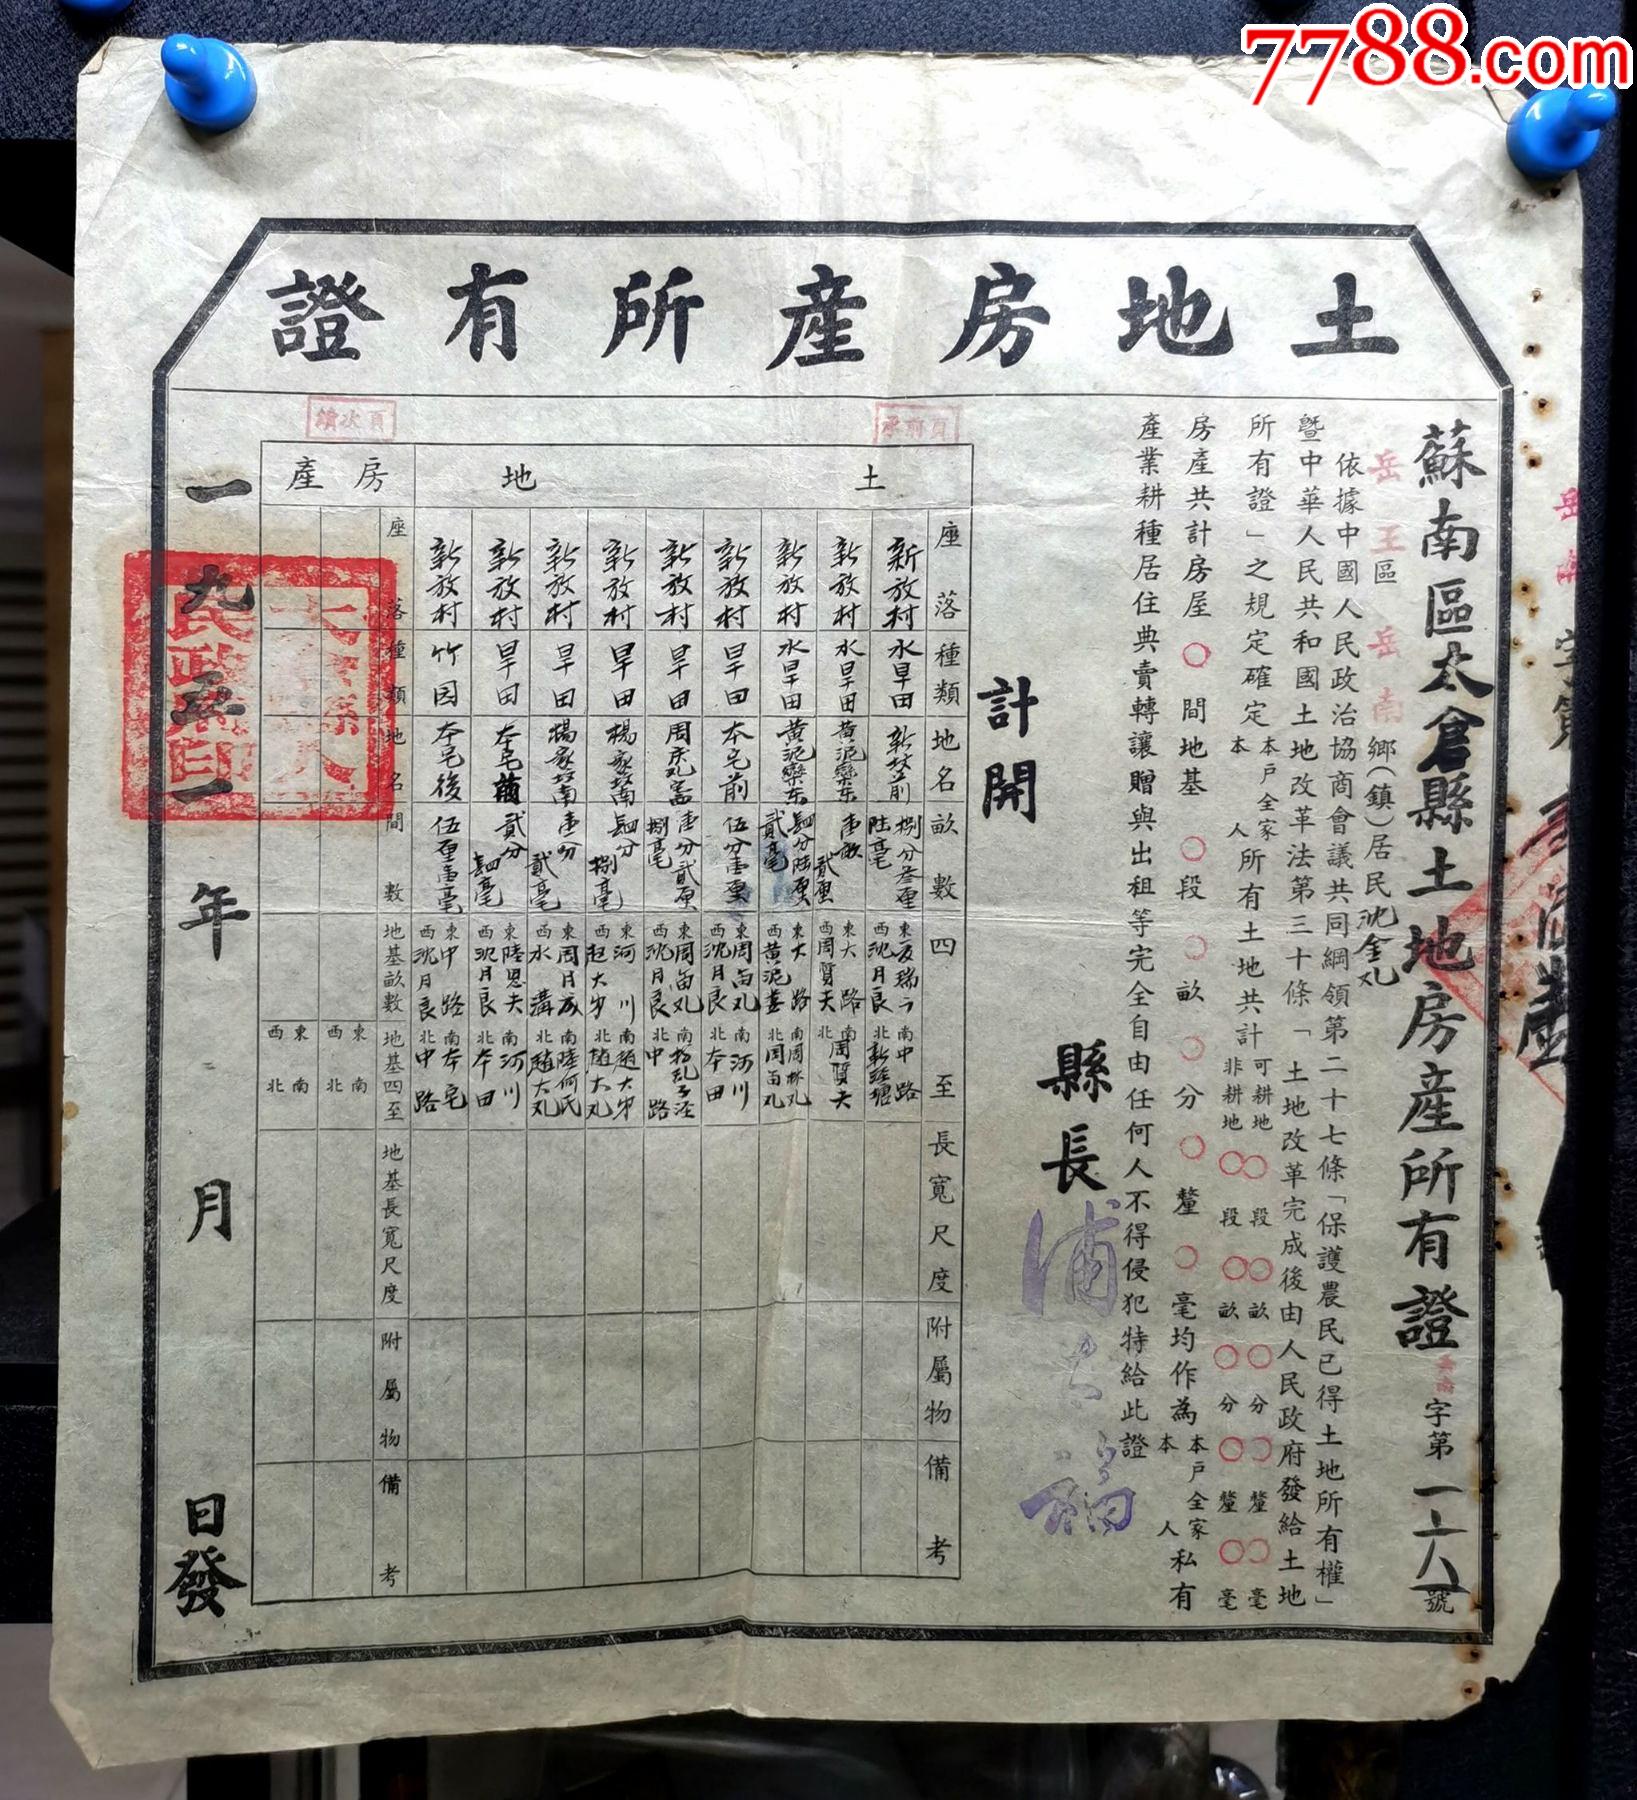 7788.com
土地房產所有證
蘇南區太倉縣土地房產所有證
字第一一六八號
岳王區岳南鄉(鎮)居民沈金
依據中國人民政治協商會議共同綱領第二十七條「保護農民已得土地所有權」
暨中華人民共和國土地改革法第三十條「土地改革完成後由人民政府發給土地
所有證」之規定確定本戶全家本人所有土地共計可耕地〇〇段〇〇畝〇〇分〇〇釐〇〇毫非耕地〇〇段〇〇畝〇〇分〇〇釐〇〇毫
房產共計房屋〇間地基〇段〇畝〇分〇釐〇毫均作為本戶全家本人私有
產業耕種居住典賣轉讓贈與出租等完全自由任何人不得侵犯特給此證
計開
縣長
承前頁
續次頁
土地
房產
座落 種類 地名 畝數 四至 長寬尺度 附屬物 備考
新放村 水旱田 新坟前 捌分叁厘陸毫 西沈月良 南中路 北新涇塘
新放村 水旱田 黃泥 東 壹畝貳厘 東大路 西周賢夫 南周賢夫 北
新放村 水旱田 黃泥 東 四分陸厘貳毫 東大路 西黃泥 南周林 北周
新放村 旱田 本宅前 伍分壹厘 東周 西沈月良 南河川 北本田
新放村 旱田 周 壹分貳厘捌毫 東周 西沈月良 南 北中路
新放村 旱田 楊家坟南 四分捌毫 東河川 西趙大 南趙大 北趙大
新放村 旱田 楊家坟南 壹分貳毫 東周月成 西水溝 南陸何氏 北趙大
新放村 旱田 本宅前 貳分四毫 東陸恩夫 西沈月良 南河川 北本田
新放村 竹园 本宅後 伍厘壹毫 東中路 西沈月良 南本宅 北中路
座落 種類 地名 間數 地基畝數 地基四至 地基長寬尺度 附屬物 備考
東 西 南 北
東 西 南 北
一九五一年 月 日發
太倉縣人民政府印